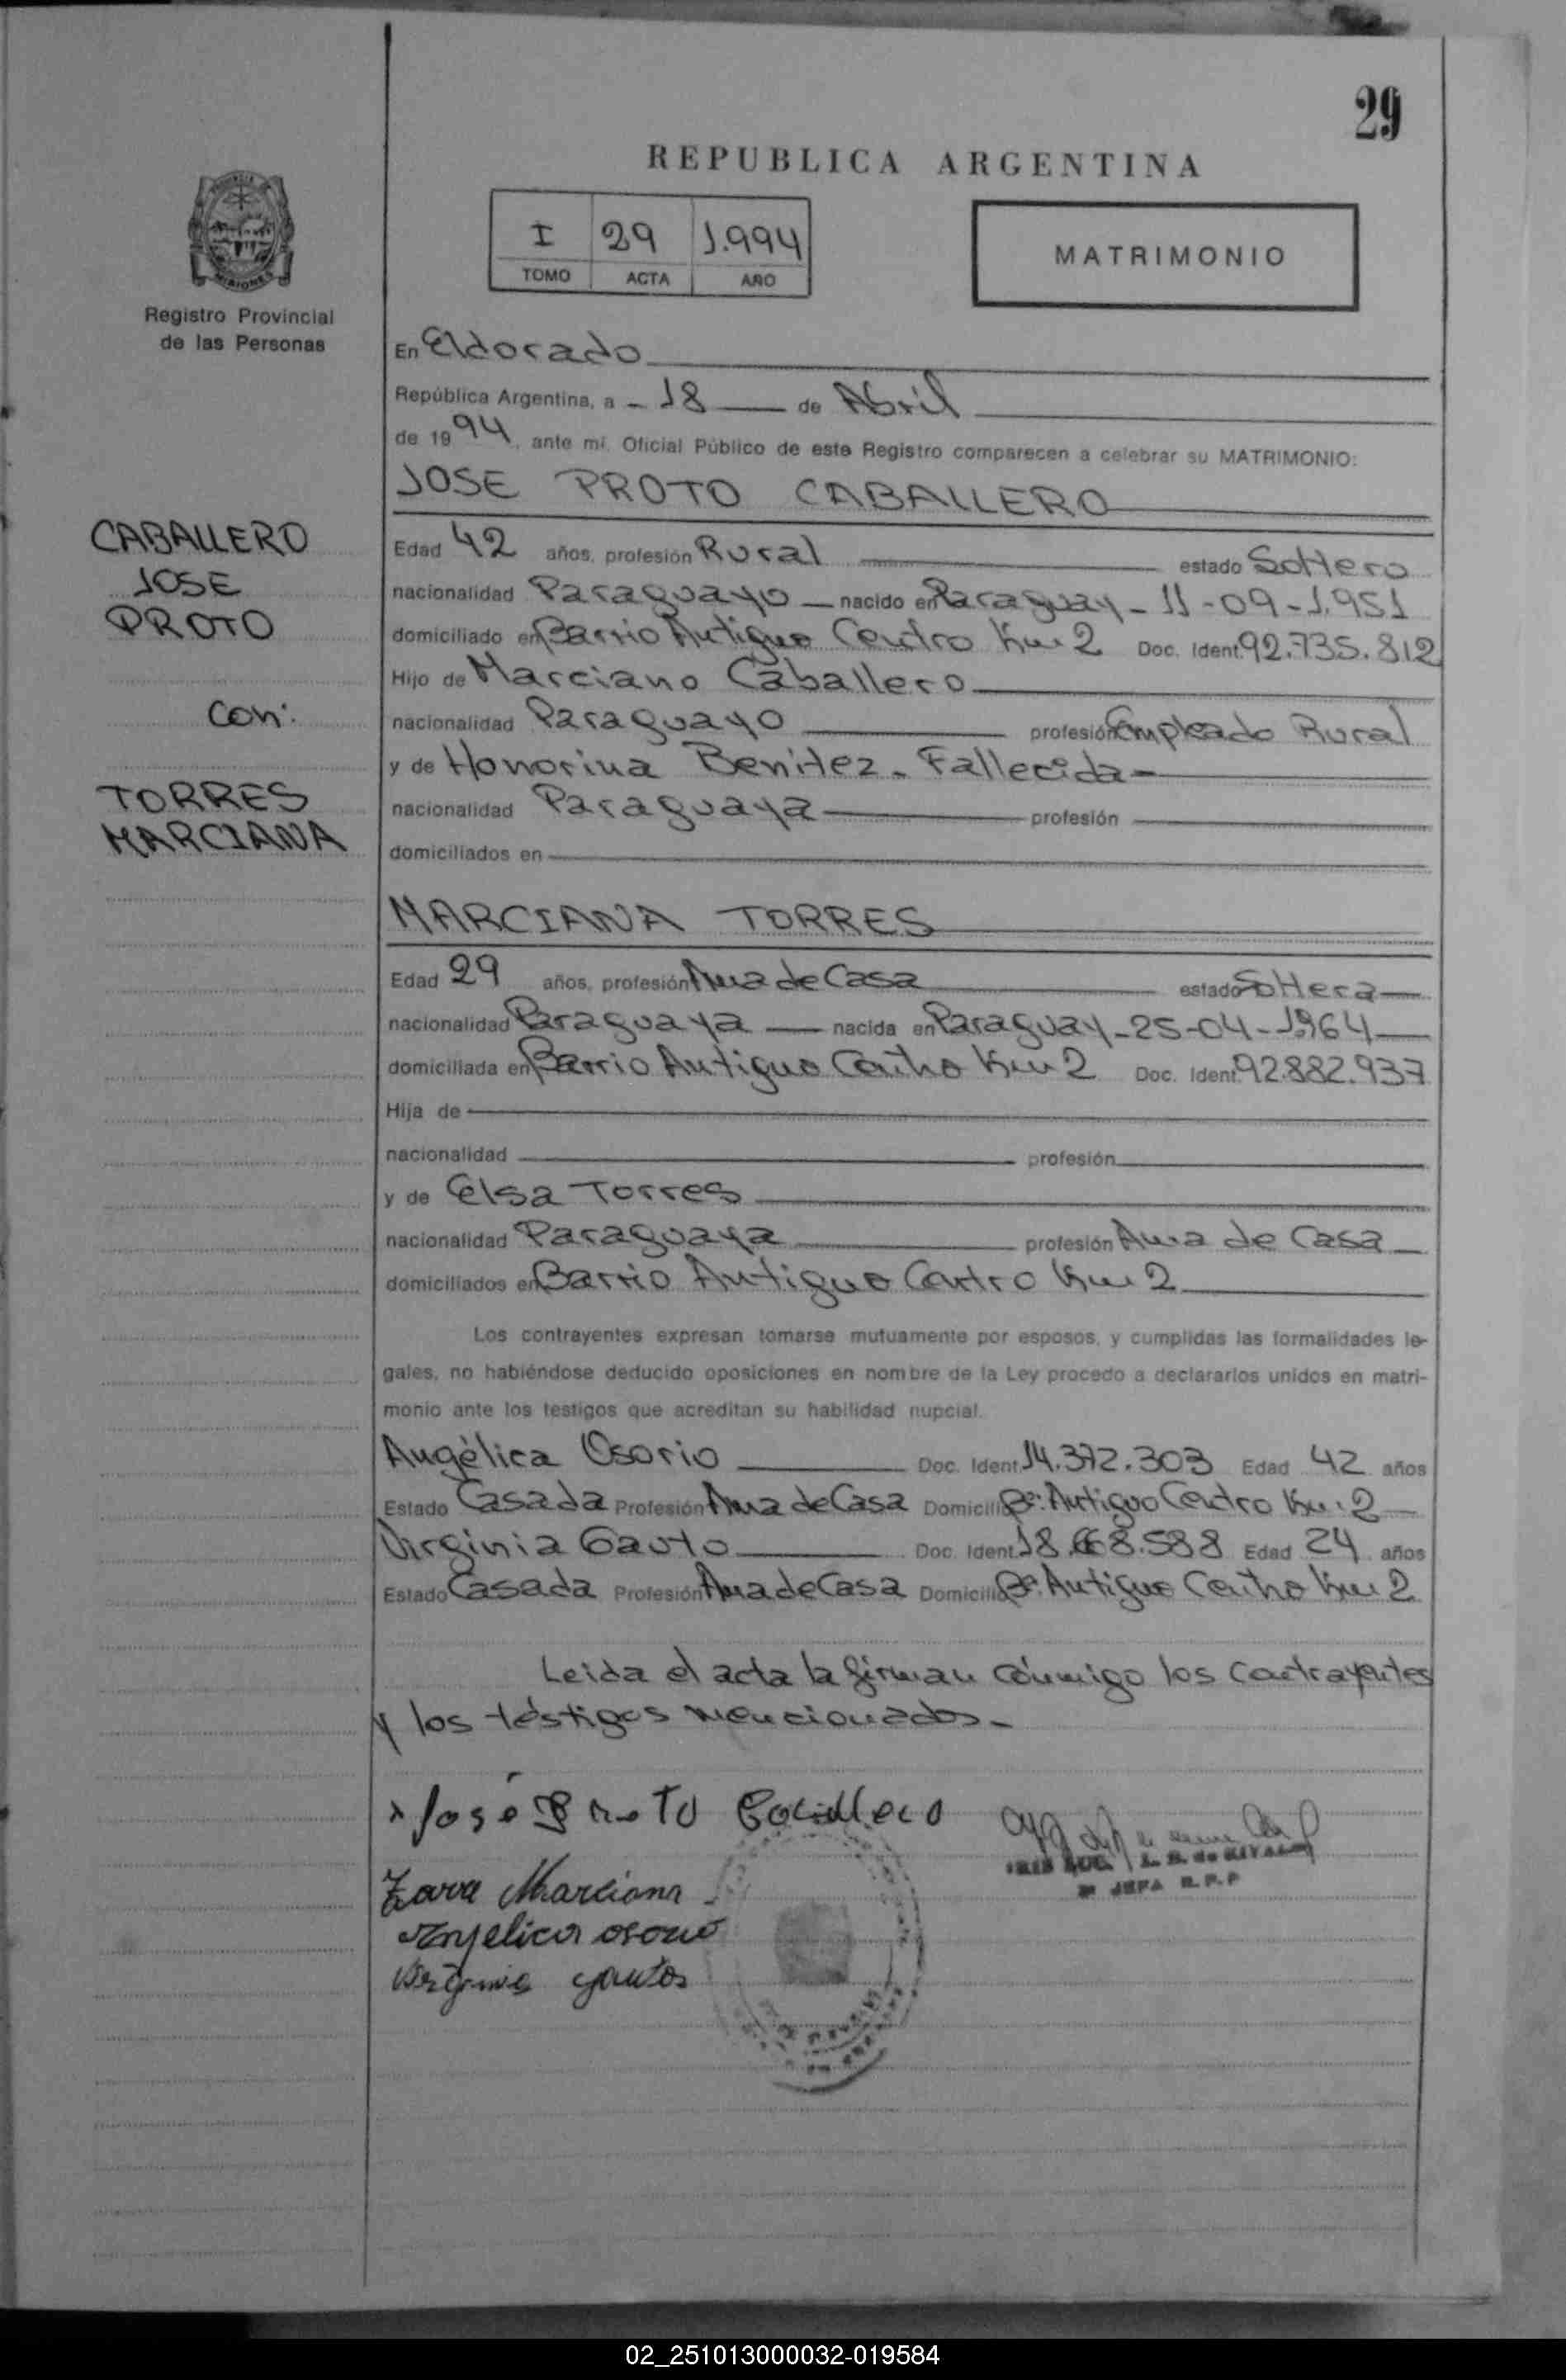 29
REPUBLICA ARGENTINA
I 29 1.994
TOMO ACTA AÑO
MATRIMONIO
Registro Provincial
de las Personas
En Eldorado
República Argentina, a - 18 de Abril
de 1994, ante mí, Oficial Público de este Registro comparecen a celebrar su MATRIMONIO:
JOSE PROTO CABALLERO
CABALLERO
JOSE
PROTO
con:
TORRES
MARCIANA
Edad 42 años, profesión Rural estado Soltero
nacionalidad Paraguayo - nacido en Paraguay - 11-09-1.951
domiciliado en Barrio Antiguo Centro Km 2 Doc. Ident. 92.735.812
Hijo de Marciano Caballero
nacionalidad Paraguayo profesión Empleado Rural
y de Honorina Benitez - Fallecida -
nacionalidad Paraguaya profesión
domiciliados en
MARCIANA TORRES
Edad 29 años, profesión Ama de Casa estado Soltera
nacionalidad Paraguaya nacida en Paraguay - 25-04-1964
domiciliada en Barrio Antiguo Centro Km 2 Doc. Ident. 92.882.937
Hija de
nacionalidad profesión
y de Elsa Torres
nacionalidad Paraguaya profesión Ama de Casa
domiciliados en Barrio Antiguo Centro Km 2
Los contrayentes expresan tomarse mutuamente por esposos, y cumplidas las formalidades le-
gales, no habiéndose deducido oposiciones en nombre de la Ley procedo a declararlos unidos en matri-
monio ante los testigos que acreditan su habilidad nupcial.
Angélica Osorio Doc. Ident. 14.372.303 Edad 42 años
Estado Casada Profesión Ama de Casa Domicilio Bº. Antiguo Centro Km. 2
Virginia Gauto Doc. Ident. 18.668.588 Edad 24 años
Estado Casada Profesión Ama de Casa Domicilio Bº. Antiguo Centro Km 2
Leida el acta la firman conmigo los contrayentes
y los testigos mencionados -
José Proto Caballero
JEFA R.P.P
Marciana
Angelica osorio
Virginia gauto
02_251013000032-019584